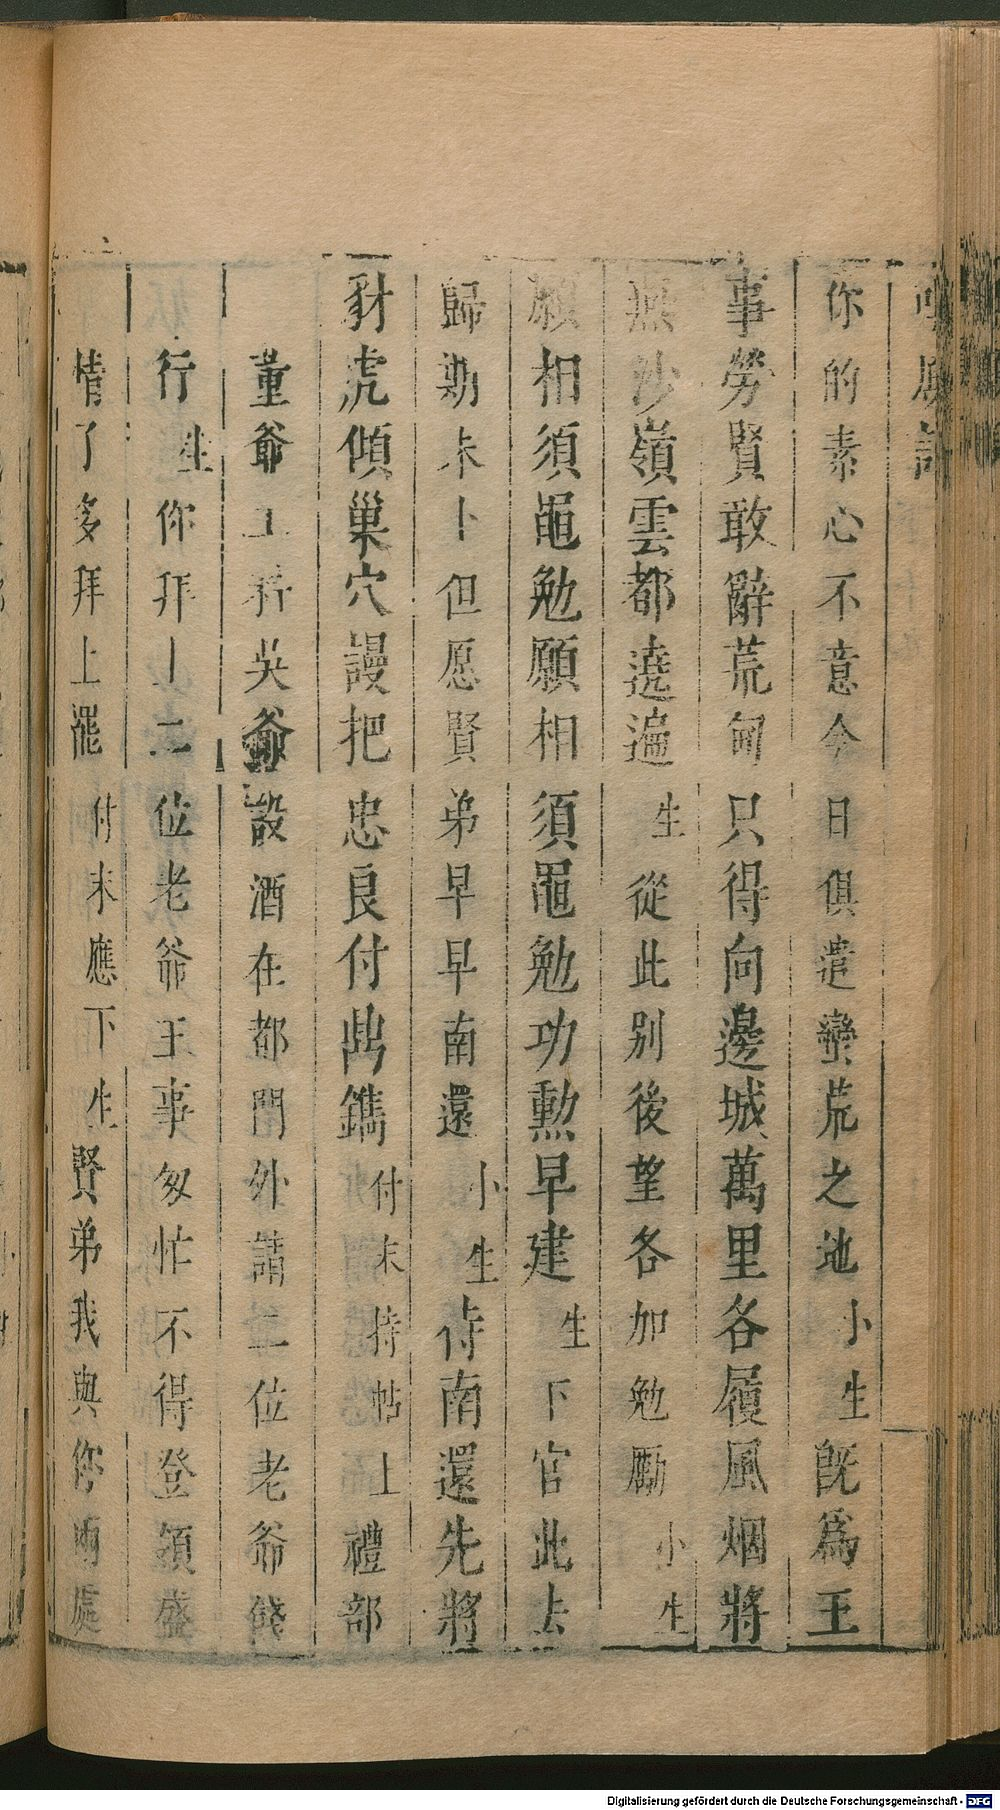 你的素心不意今日俱遣蠻荒之地小生旣爲王
事勞賢敢辭荒甸只得向邊城萬里各履風烟將
燕沙嶺雲都遶遍生從此别後望各加勉勵小生
願相須黽勉願相須黽勉功勲早建生下官此去
歸期未卜但愿賢弟早早南還小生待南還先將
豺虎傾巢穴謾把忠良付鼎鐫付末持帖上禮部
董爺工科吳爺設酒在都門外請二位老爺餞
行生你拜上二位老爺王事匆忙不得登領盛
情了多拜上罷付末應下生賢弟我與你兩處
Digitalisierung gefördert durch die Deutsche Forschungsgemeinschaft - DFG